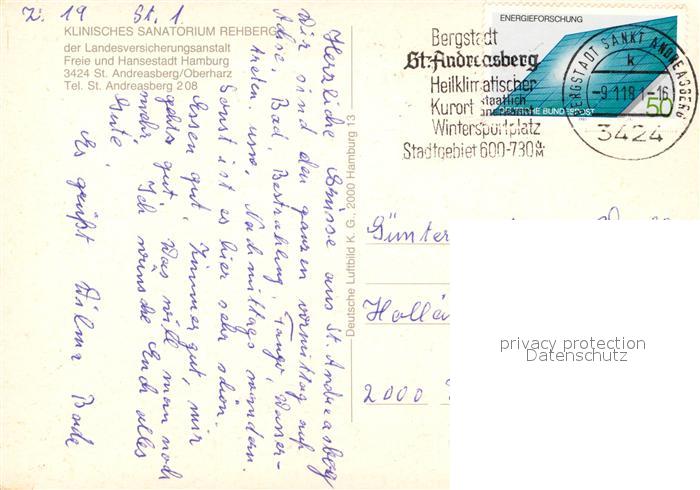 Z. 19 St. 1
KLINISCHES SANATORIUM REHBERG
der Landesversicherungsanstalt
Freie und Hansestadt Hamburg
3424 St. Andreasberg/Oberharz
Tel. St. Andreasberg 2 08
Herrliche Grüsse aus St. Andreasberg
Wir sind den ganzen vormittag auf
Achse, Bad, Bestrahlung, Tango, Wasser-
treten usw. Nachmittags wandern.
Sonst ist es hier sehr schön.
Essen gut, Zimmer gut, mir
gehts gut. Was will man noch
mehr. Ich wünsche Euch alles
Gute.
Es grüßt Wilma Bade
Deutsche Luftbild K. G., 2000 Hamburg 13
Bergstadt
St. Andreasberg
Heilklimatischer
Kurort staatlich anerkannt
Wintersportplatz
Stadtgebiet 600-730 m
ENERGIEFORSCHUNG
DEUTSCHE BUNDESPOST
50
BERGSTADT SANKT ANDREASBERG
k
-9.11.81-16
3424
Günter
Hollä
2000
privacy protection
Datenschutz